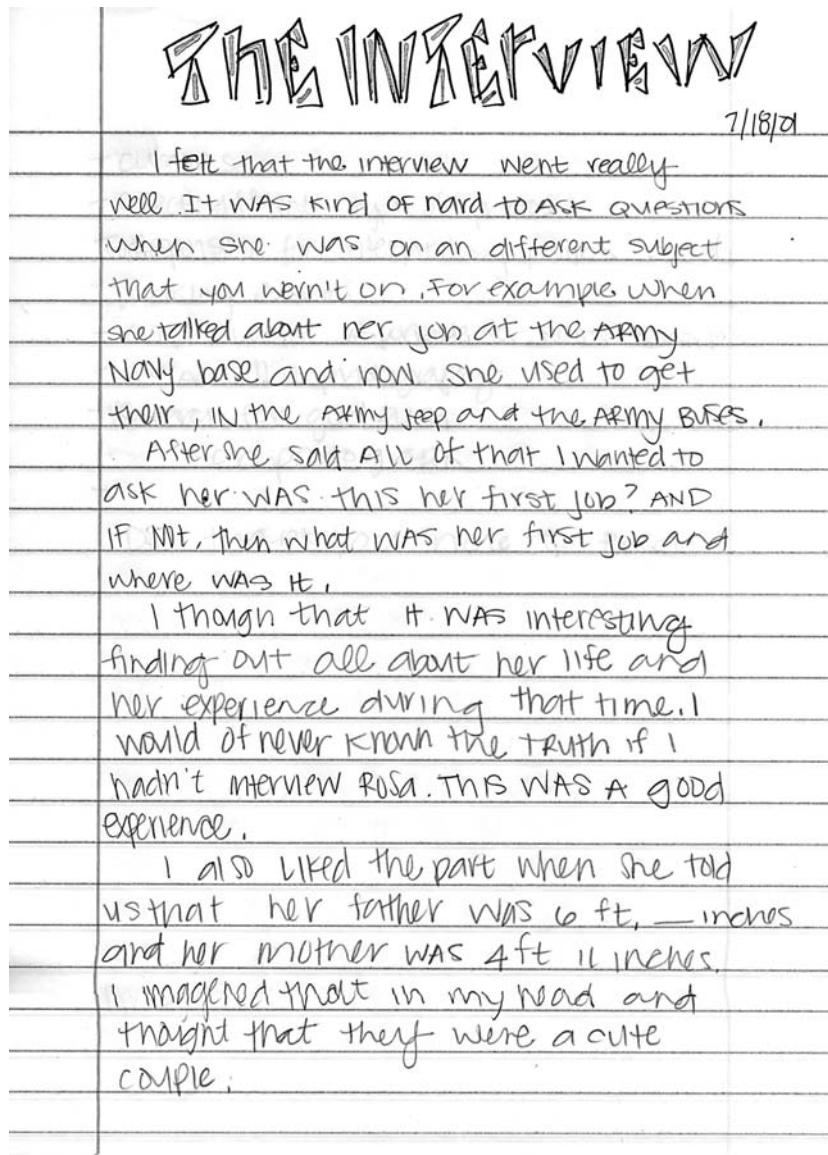 THE INTERVIEW
7/18/01
I felt that the interview went really
well. It WAS kind of hard to ASK QUESTIONS
when she was on an different subject
that you wern't on. For example when
she talked about her job at the ARMY
Navy base and how she used to get
their, IN the ARMY Jeep and the ARMY BUSES.
After she said All of that I wanted to
ask her WAS this her first job? AND
IF Not, then what WAS her first job and
where WAS it.
I though that it WAS interesting
finding out all about her life and
her experience during that time. I
would of never known the TRUTH if I
hadn't interview Rosa. THIS WAS A gOOd
experience.
I also Liked the part when she told
us that her father was 6 ft, __ inches
and her mother WAS 4 ft 11 inches.
I imagened that in my head and
thought that they were a cute
couple.